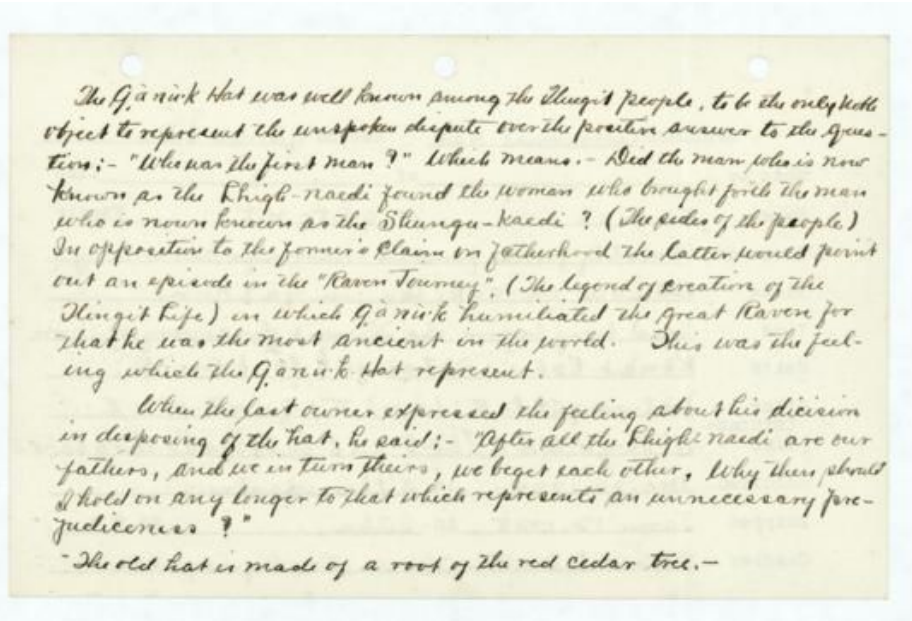 The Ganook Hat was well known among the Tlingit people, to be the only noble
object to represent the unspoken dispute over the positive answer to the ques-
tion:- "Who was the first man?" Which means.- Did the man who is now
known as the Lhigh-naedi found the woman who brought forth the man
who is nown known as the Shungu-kaedi? (The sides of the people)
In opposition to the former's claim on fatherhood the latter would point
out an episode in the "Raven Journey". (The legend of creation of the
Tlingit Life) in which Ganook humiliated the great Raven for
that he was the most ancient in the world. This was the feel-
ing which the Ganook Hat represent.
When the last owner expressed the feeling about his dicision
in disposing of the hat, he said:- "After all the Lhigh-naedi are our
fathers, and we in turn theirs, we beget each other. Why then should
I hold on any longer to that which represents an unnecessary pre-
judiceness?"
-The old hat is made of a root of the red cedar tree.-